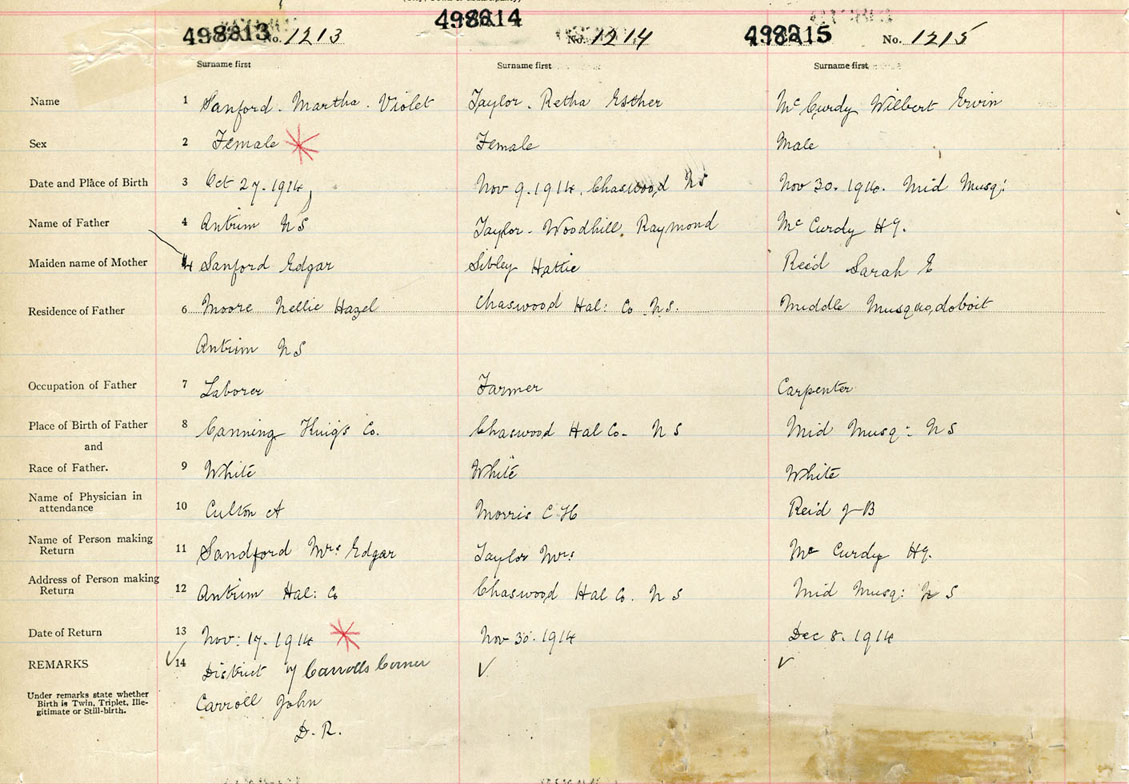 498813 No. 1213 498814 No. 1214 498815 No. 1215
Surname first Surname first Surname first
Name 1 Sanford. Martha. Violet Taylor. Retha Esther McCurdy Wilbert Ervin
Sex 2 Female Female Male
Date and Place of Birth 3 Oct 27. 1914, Nov 9. 1914, Chaswood NS Nov 30. 1914. Mid Musq:
Name of Father 4 Antrim NS Taylor - Woodhill, Raymond McCurdy H.G.
Maiden name of Mother 4 Sanford Edgar Sibley Hattie Reid Sarah E
Residence of Father 6 Moore Nellie Hazel Chaswood Hal: Co. N.S. Middle Musquodoboit
Antrim NS
Occupation of Father 7 Laborer Farmer Carpenter
Place of Birth of Father 8 Canning King's Co. Chaswood Hal Co. NS Mid Musq: NS
and
Race of Father. 9 White White White
Name of Physician in
attendance 10 Culton A Morris C H Reid J B
Name of Person making
Return 11 Sandford Mrs Edgar Taylor Mrs McCurdy H.G.
Address of Person making
Return 12 Antrim Hal: Co Chaswood Hal Co. NS Mid Musq: NS
Date of Return 13 Nov: 17. 1914 Nov 30. 1914 Dec 8. 1914
REMARKS 14 District of Carrolls Corner
Under remarks state whether
Birth is Twin, Triplet, Ille-
gitimate or Still-birth.
Carroll John
D. R.